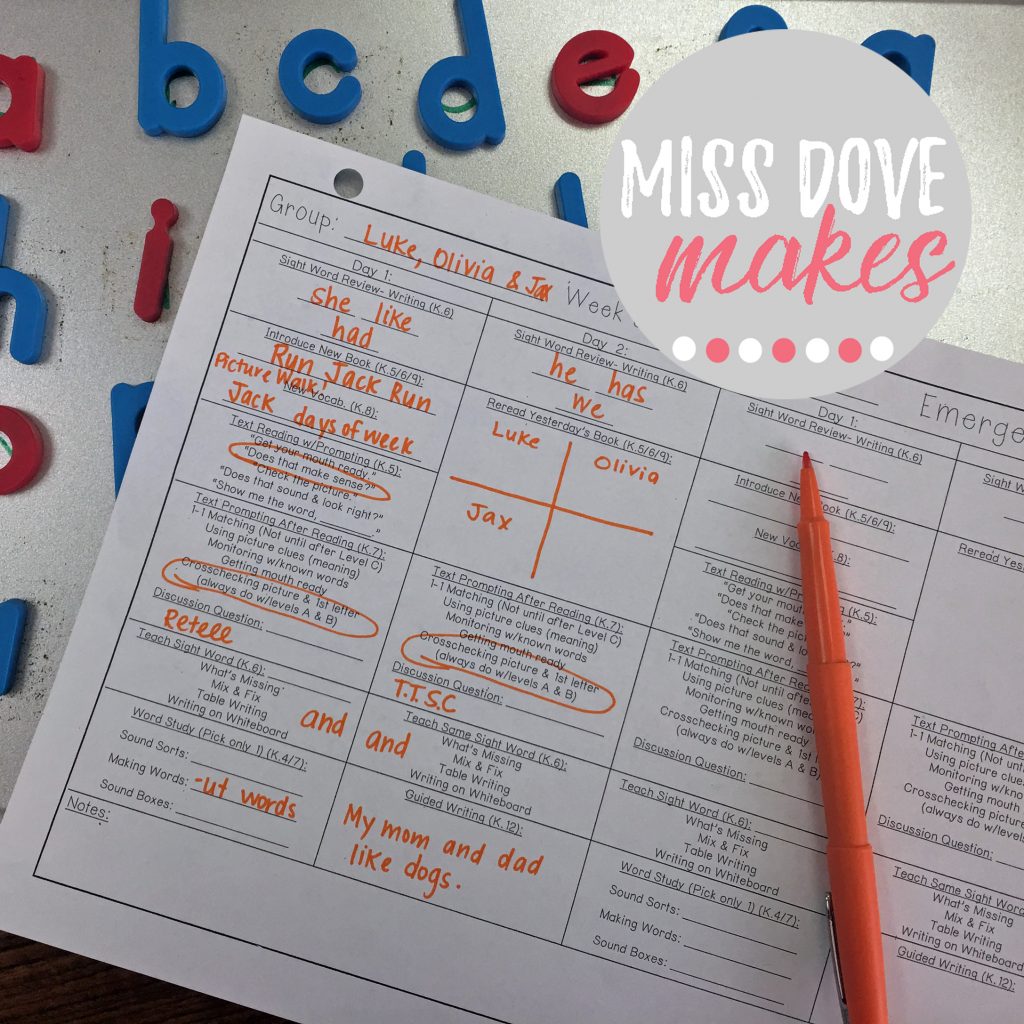 a b c d e
h i
MISS DOVE
makes
Group: Luke, Olivia & Jax Week
Day 1:
Sight Word Review- Writing (K.6)
she like
had
Introduce New Book (K.5/6/9):
Run Jack Run
Picture Walk!
New Vocab. (K.8):
Jack days of week
Text Reading w/Prompting (K.5):
"Get your mouth ready."
"Does that make sense?"
"Check the picture."
"Does that sound & look right?"
"Show me the word, ______."
Text Prompting After Reading (K.7):
1-1 Matching (Not until after Level C)
Using picture clues (meaning)
Monitoring w/known words
Getting mouth ready
Crosschecking picture & 1st letter
(always do w/levels A & B)
Discussion Question:
Retell
Teach Sight Word (K.6):
What's Missing
Mix & Fix
Table Writing
Writing on Whiteboard
and
Word Study (Pick only 1) (K.4/7):
Sound Sorts:
Making Words: -ut words
Sound Boxes:
Notes:
Day 2:
Sight Word Review- Writing (K.6)
he has
we
Reread Yesterday's Book (K.5/6/9):
Luke Olivia
Jax
Text Prompting After Reading (K.7):
1-1 Matching (Not until after Level C)
Using picture clues (meaning)
Monitoring w/known words
Getting mouth ready
Crosschecking picture & 1st letter
(always do w/levels A & B)
Discussion Question:
T.T.S.C
Teach Same Sight Word (K.6):
and
What's Missing
Mix & Fix
Table Writing
Writing on Whiteboard
Guided Writing (K.12):
My mom and dad
like dogs.
Emerge
Day 1:
Sight Word Review- Writing (K.6)
Introduce New B (K.5/6/9):
New Voc (K.8):
Text Reading w/Pro (K.5):
"Get your mou
"Does that ma
"Check the pic
"Does that sound & lo
"Show me the word,
Text Prompting After Read (K.7):
1-1 Matching (Not until after
Using picture clues (mean
Monitoring w/known wor
Getting mouth ready
Crosschecking picture & 1st
(always do w/levels A & B)
Discussion Question:
Teach Sight Word (K.6):
What's Missing
Mix & Fix
Table Writing
Writing on Whiteboard
Word Study (Pick only 1) (K.4/7):
Sound Sorts:
Making Words:
Sound Boxes:
Sight W
Reread Yes
Text Prompting Aft
1-1 Matching (No
Using picture
Monitoring
Getting
Crosschecking
(always do
Discussion Question:
Teach Same Sight Word
What's Missing
Mix & Fix
Table Writing
Writing on Whiteboard
Guided Writing (K.12):